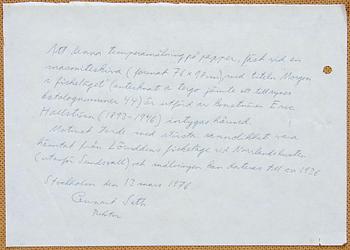 Att denna temperamålning på papper, fäst vid en
masonitskiva (format 76 x 90 cm) med titeln Morgon
i fiskeläget (antecknat a tergo jämte ett tillsynes
katalognummer 44) är utförd av konstnären Eric
Hallström (1893-1946) intygas härmed.
Motivet torde med största sannolikhet vara
hämtat från Lörudden fiskeläge vid Norrlandskusten
(utanför Sundsvall) och målningen kan dateras till ca 1926
Stockholm den 12 mars 1976
Lennart